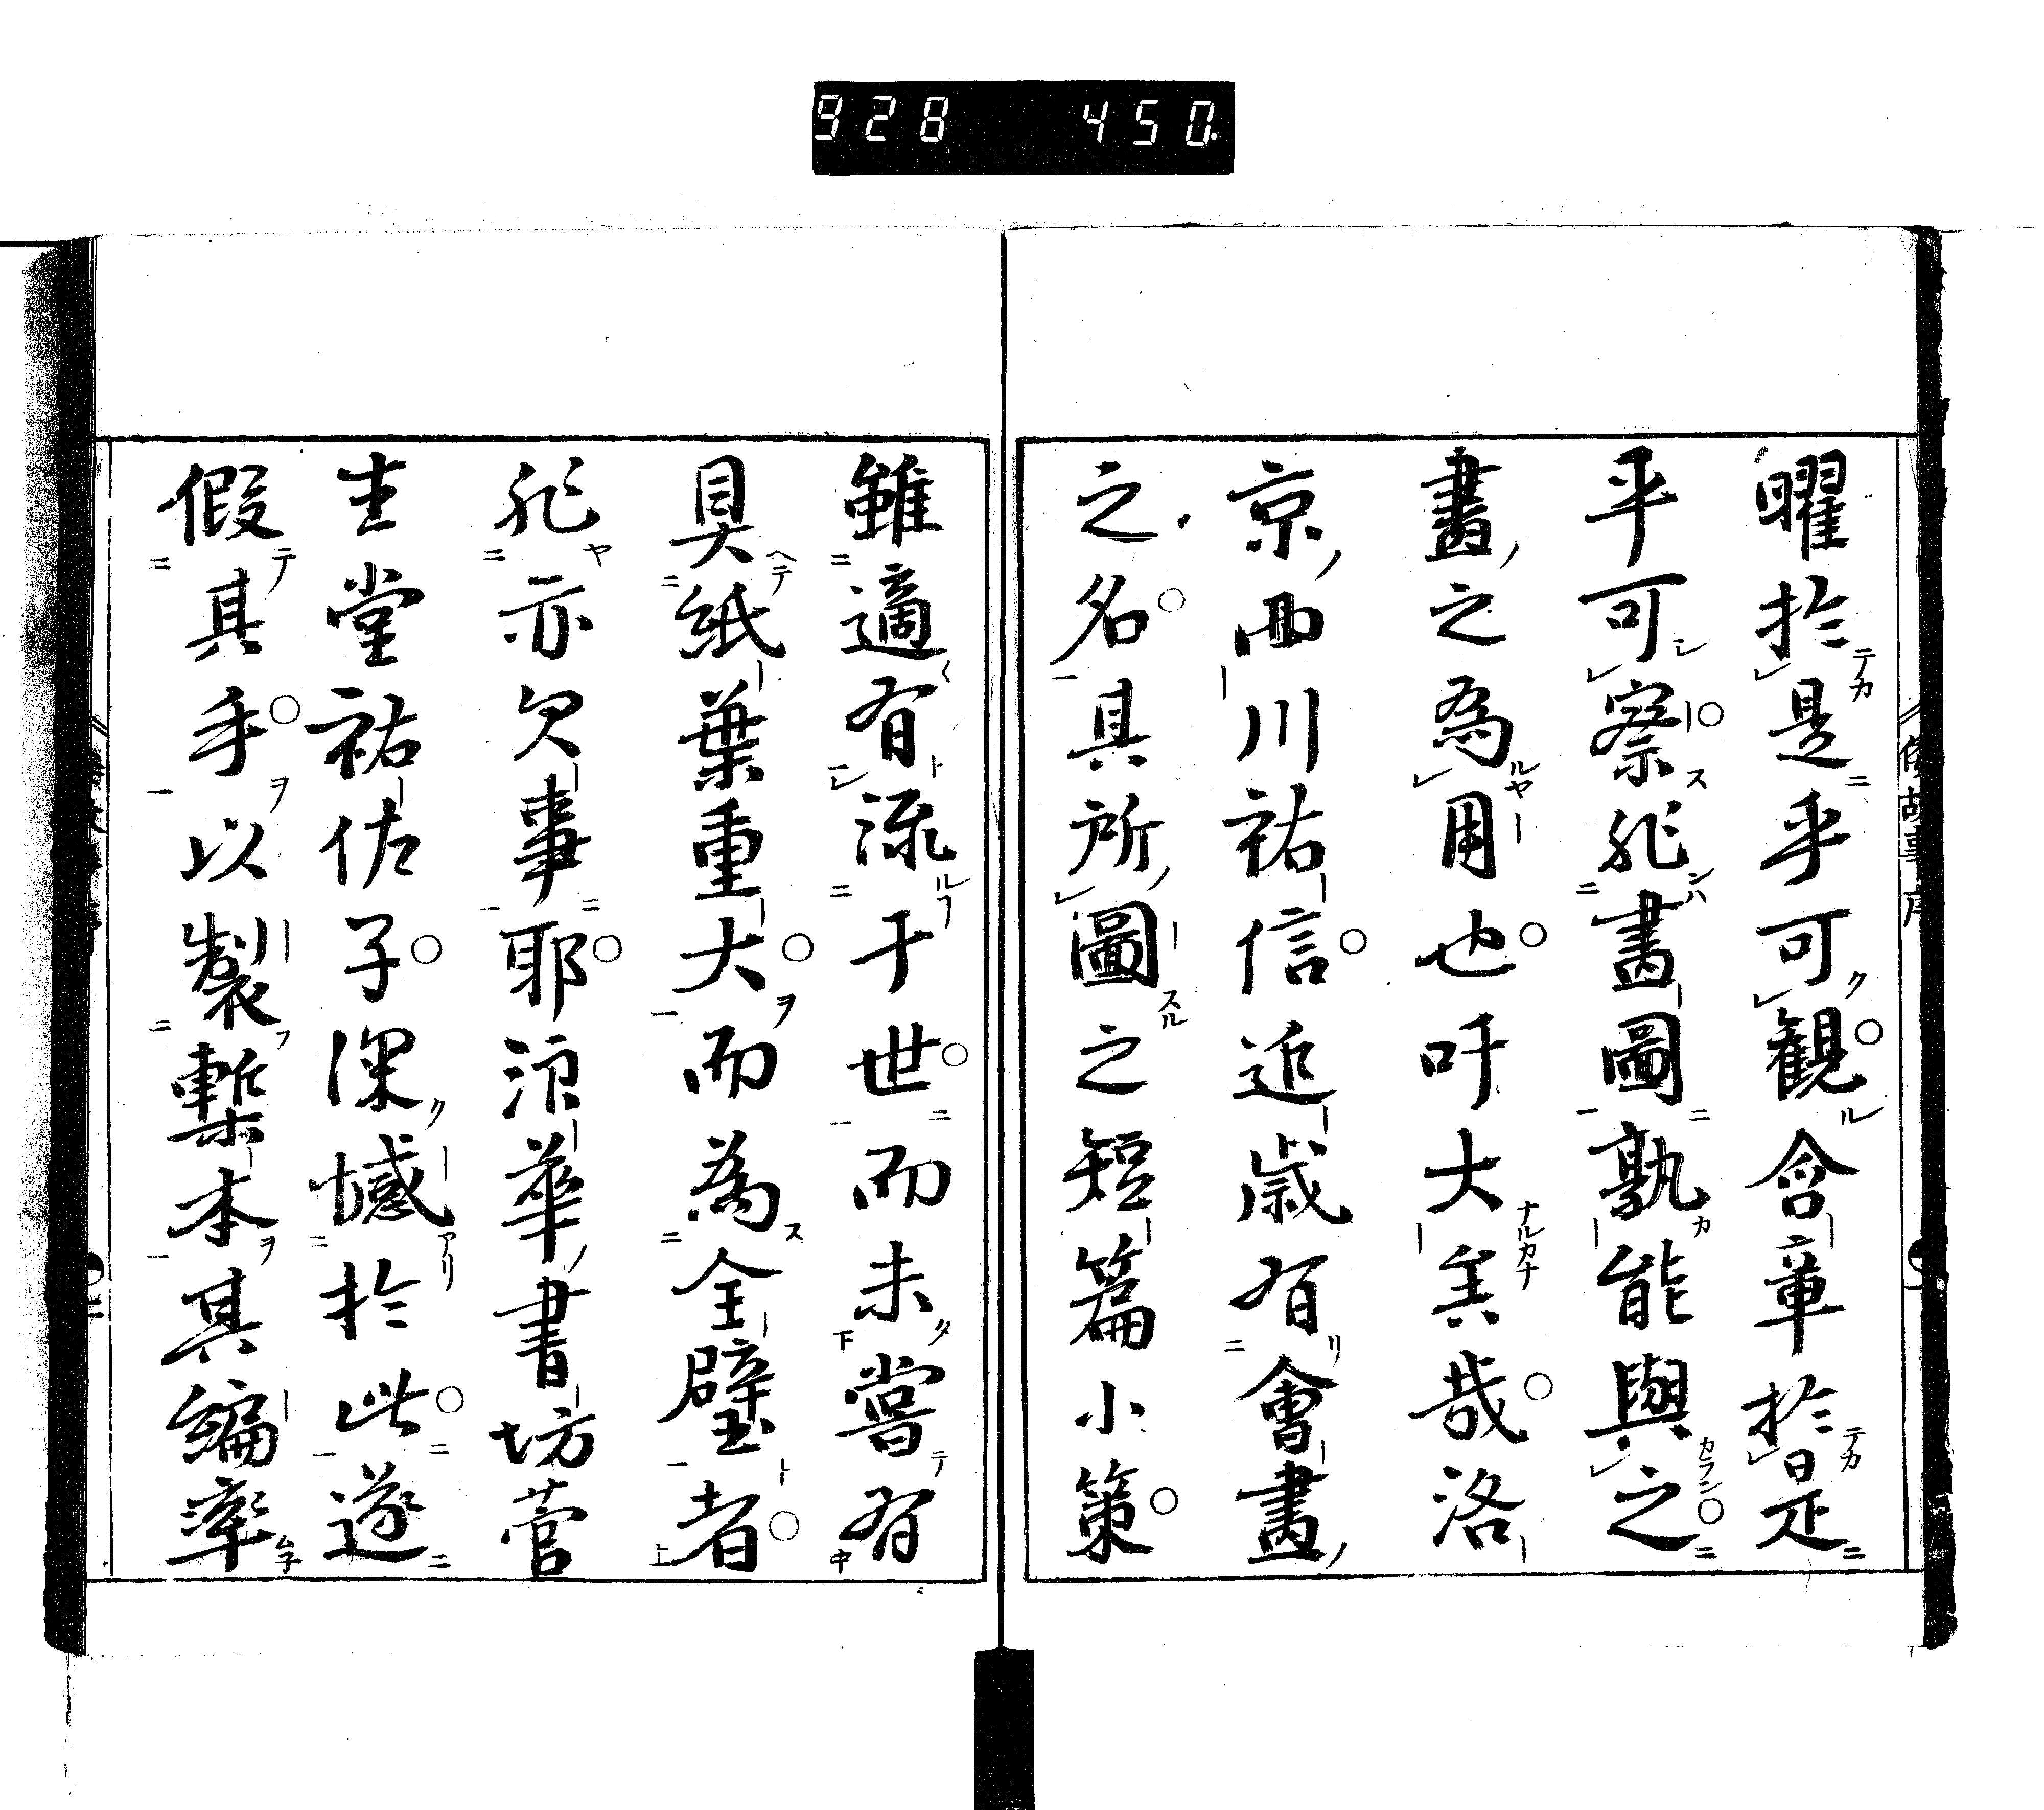 928 450
曜於是乎可觀含章於是
乎可察非畫圖孰能與之
畫之為用也吁大矣哉洛
京西川祐信近歲有會畫
之名其所圖之短篇小策
雖適有流于世而未嘗有
具紙葉重大而為全璧者
非亦欠事耶浪華書坊菅
生堂祐佐子深憾於此遂
假其手以製槧本其編率